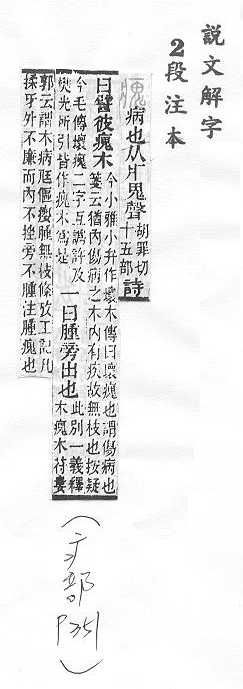 説文解字
2段注本
病也从疒鬼聲
胡罪切
十五部
詩
曰譬彼瘣木
今小雅小弁作壞木傳曰壞瘣也謂傷病也
箋云猶內傷病之木內有疾故無枝也按疑
今毛傳壞瘣二字互譌許及
樊光所引皆作瘣木爲是
一曰腫旁出也
此別一義釋
木瘣木符婁
郭云謂木病尪傴癭腫無枝條攷工記凡
揉牙外不廉而內不挫旁不腫注腫瘣也
（疒部 P351）